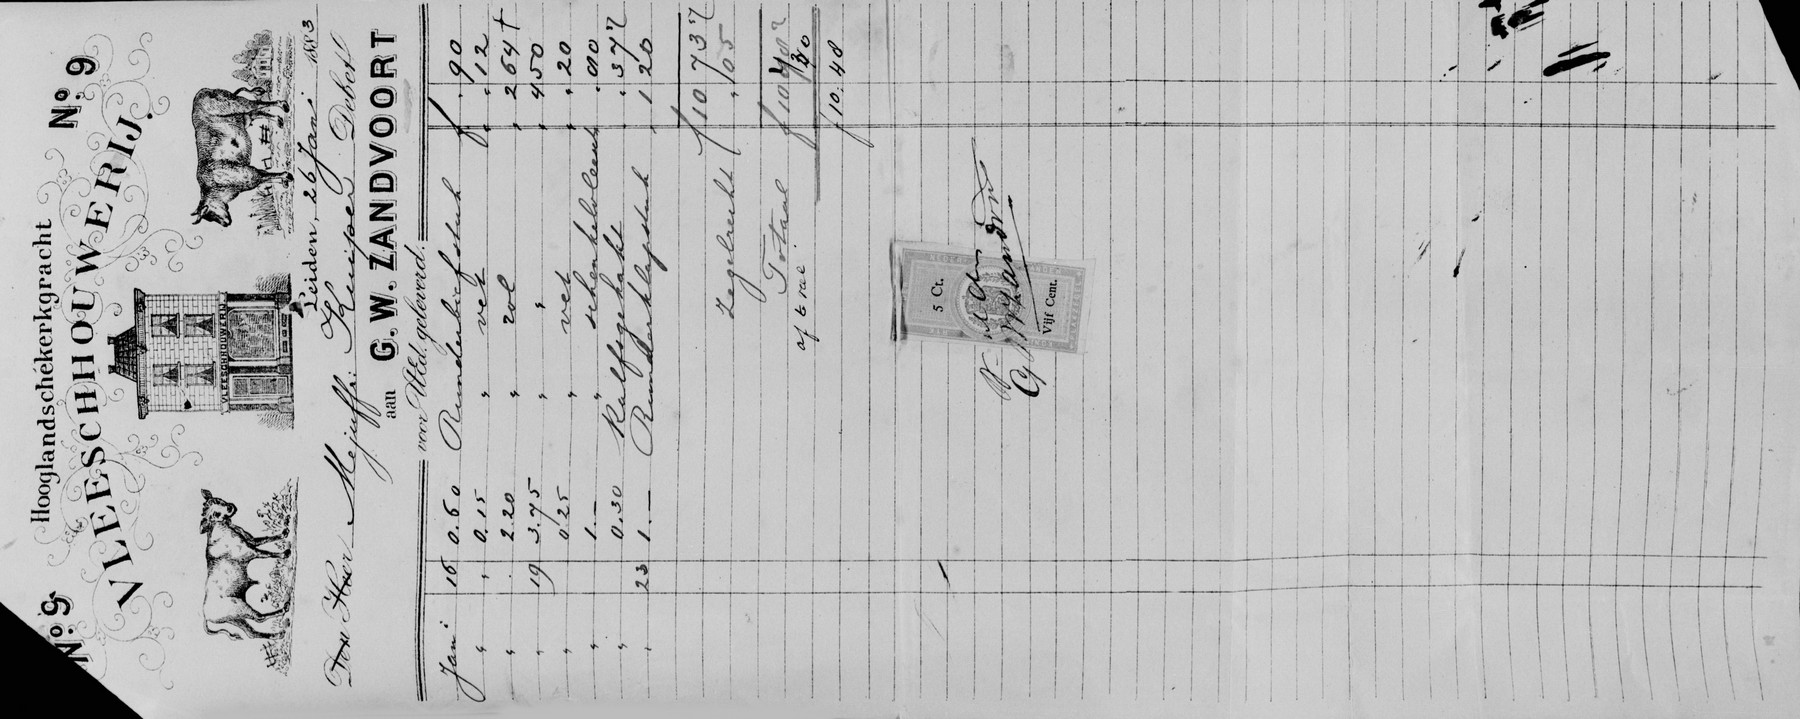 Hooglandschékerkgracht
No. 9 No. 9
VLEESCHHOUWERIJ.
VLEESCHHOUWERIJ
Leiden, 26 Janⁱ 1883
Den Heer Mejuffr: Kuiper Debet
aan G. W. ZANDVOORT
voor UEd. geleverd:
Janⁱ 16 0.60 Runderbiefstuk f . 90
" " 0.15 " vet " " 12
" . 2.20 " rol " 2 64
" 19 3.75 " " " 4 50
" 0.25 " vet " " 20
" 1.— " schenkel " . 80
" 0.30 Kalfsgehakt " . 37⁵
" 23 1.— Runderklapstuk " 1 20
f 10 73⁵
Zegelrecht " 05
Totaal
af
f 10.48
NEDERLANDEN
5 Ct.
Vijf Cent.
Voldaan
G W Zandvoort